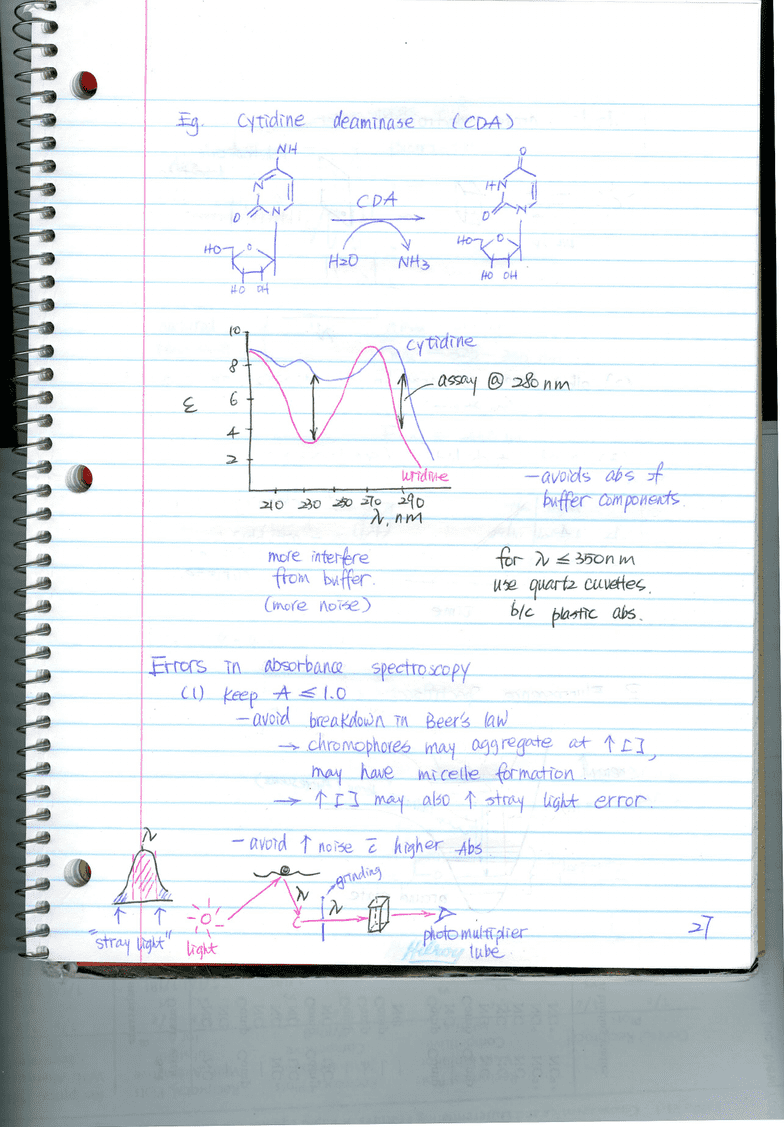 Eg. Cytidine deaminase (CDA)
NH
N
O N
HO O
HO OH
CDA
H2O NH3
O
HN
O N
HO O
HO OH
10
8
6
4
2
ε
cytidine
assay @ 280 nm
uridine
210 230 250 270 290
λ, nm
- avoids abs of
buffer components.
more interfere
from buffer.
(more noise)
for λ ≤ 350nm
use quartz cuvettes.
b/c plastic abs.
Errors in absorbance spectroscopy
(1) keep A ≤ 1.0
- avoid breakdown in Beer's law
→ chromophores may aggregate at ↑ [ ],
may have micelle formation.
→ ↑ [ ] may also ↑ stray light error.
- avoid ↑ noise c̄ higher Abs.
λ
"stray light"
light
λ
grinding
λ
photomultiplier
tube.
Hilroy
27